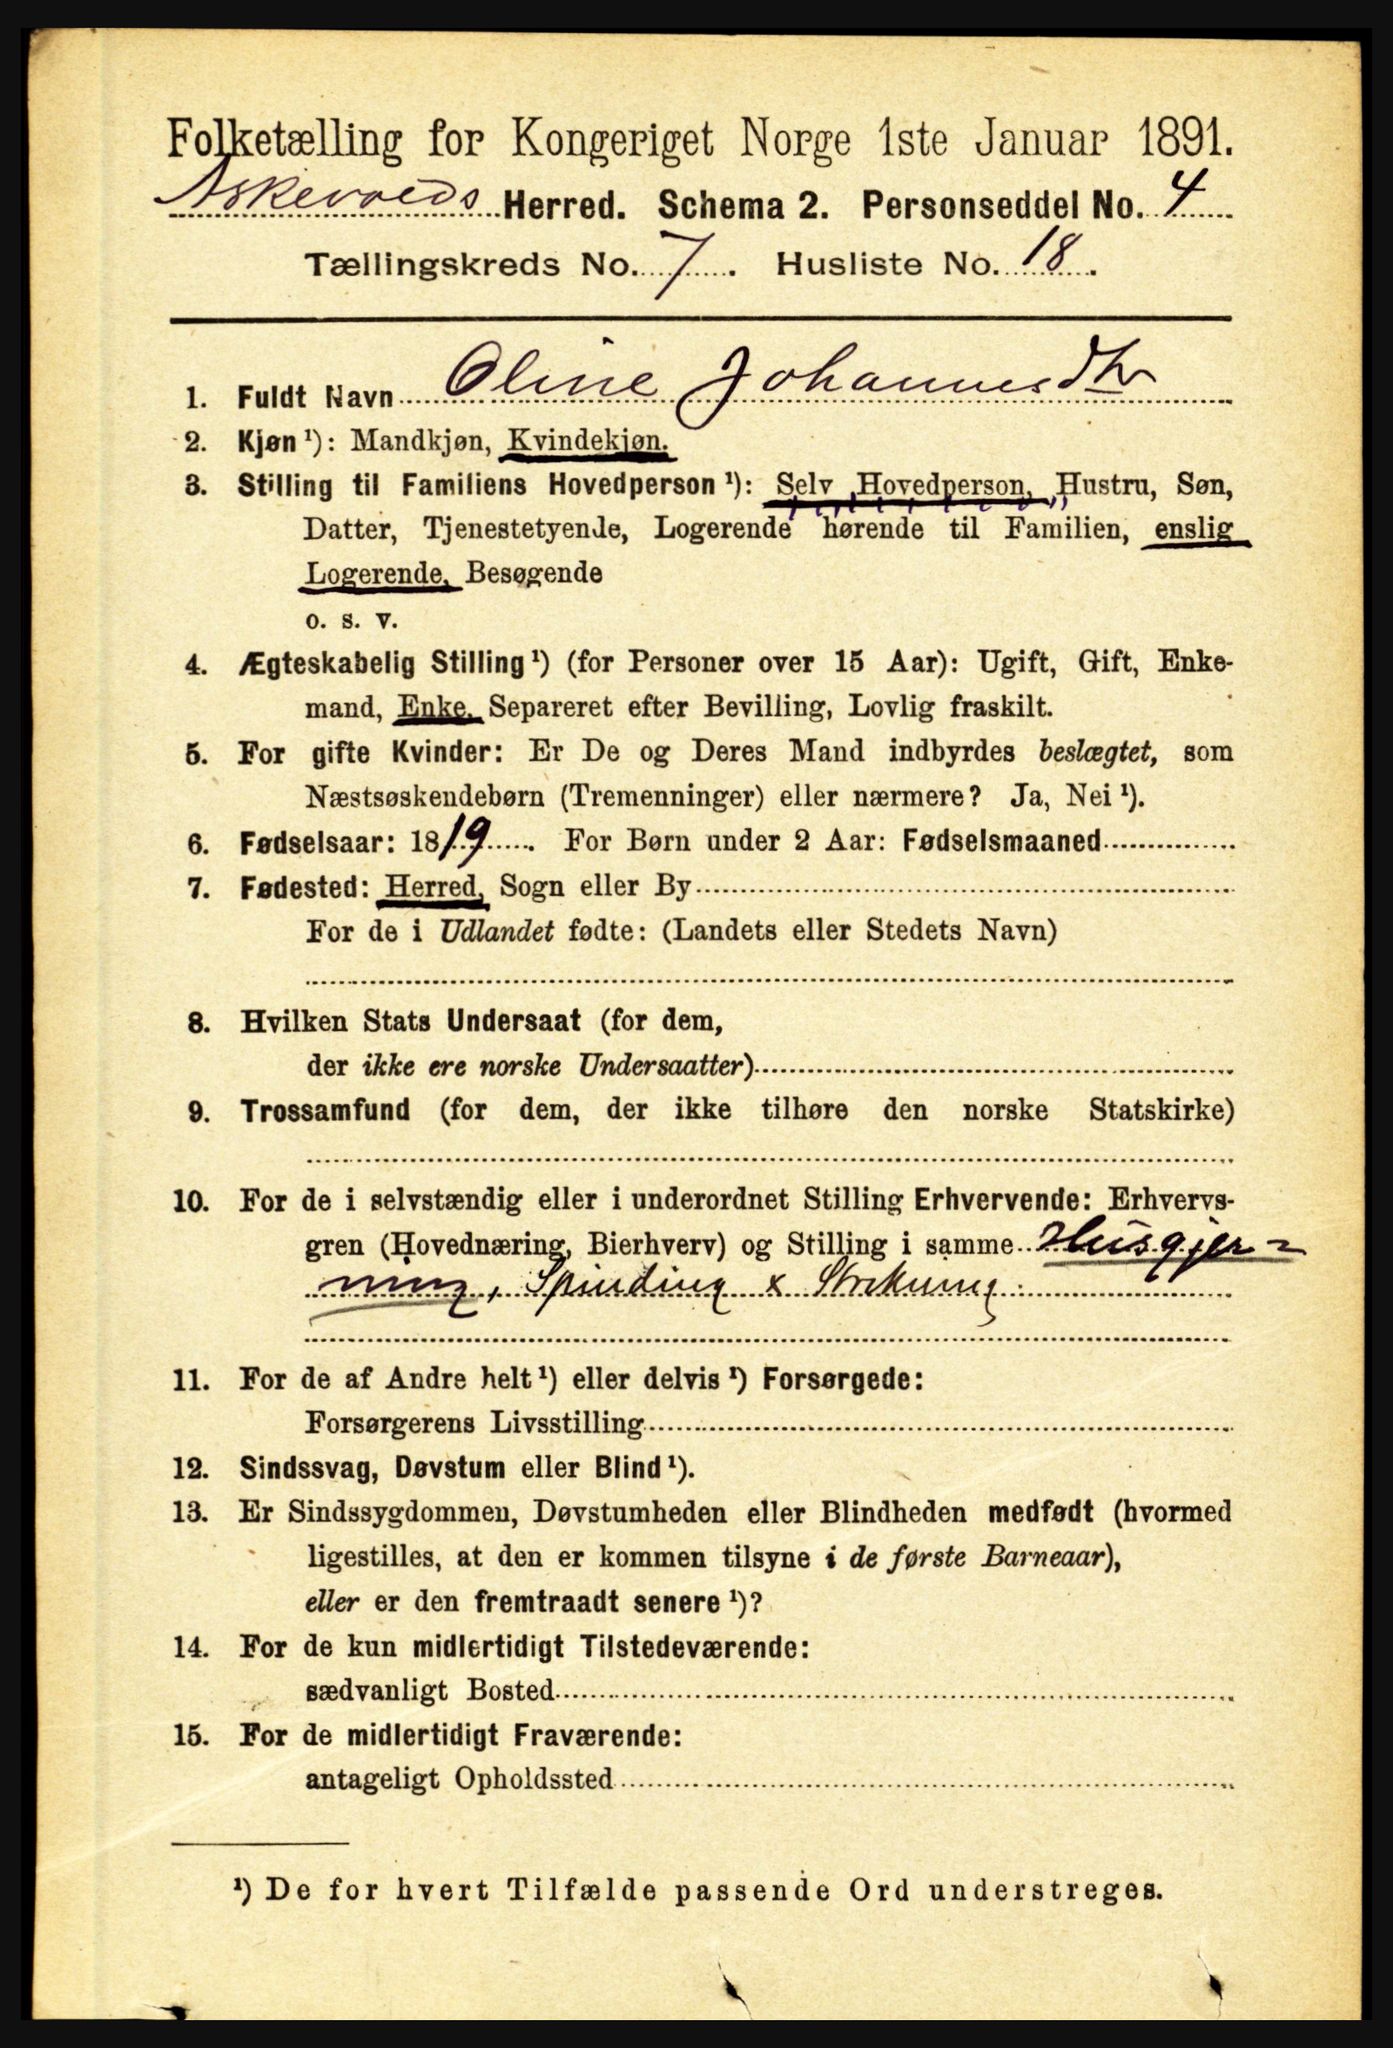 Folketælling for Kongeriget Norge 1ste Januar 1891.
Askevolds Herred. Schema 2. Personseddel No. 4
Tællingskreds No. 7. Husliste No. 18.
1. Fuldt Navn Oline Johannesdtr
2. Kjøn ¹): Mandkjøn, Kvindekjøn.
3. Stilling til Familiens Hovedperson ¹): Selv Hovedperson, Hustru, Søn,
Datter, Tjenestetyende, Logerende hørende til Familien, enslig
Logerende, Besøgende
o. s. v.
4. Ægteskabelig Stilling ¹) (for Personer over 15 Aar): Ugift, Gift, Enke-
mand, Enke, Separeret efter Bevilling, Lovlig fraskilt.
5. For gifte Kvinder: Er De og Deres Mand indbyrdes beslægtet, som
Næstsøskendebørn (Tremenninger) eller nærmere? Ja, Nei ¹).
6. Fødselsaar: 1819. For Børn under 2 Aar: Fødselsmaaned
7. Fødested: Herred, Sogn eller By
For de i Udlandet fødte: (Landets eller Stedets Navn)
8. Hvilken Stats Undersaat (for dem,
der ikke ere norske Undersaatter)
9. Trossamfund (for dem, der ikke tilhøre den norske Statskirke)
10. For de i selvstændig eller i underordnet Stilling Erhvervende: Erhvervs-
gren (Hovednæring, Bierhverv) og Stilling i samme Husgjer=
ning, Spinding & Strikning.
11. For de af Andre helt ¹) eller delvis ¹) Forsørgede:
Forsørgerens Livsstilling
12. Sindssvag, Døvstum eller Blind ¹).
13. Er Sindssygdommen, Døvstumheden eller Blindheden medfødt (hvormed
ligestilles, at den er kommen tilsyne i de første Barneaar),
eller er den fremtraadt senere ¹)?
14. For de kun midlertidigt Tilstedeværende:
sædvanligt Bosted
15. For de midlertidigt Fraværende:
antageligt Opholdssted
¹) De for hvert Tilfælde passende Ord understreges.